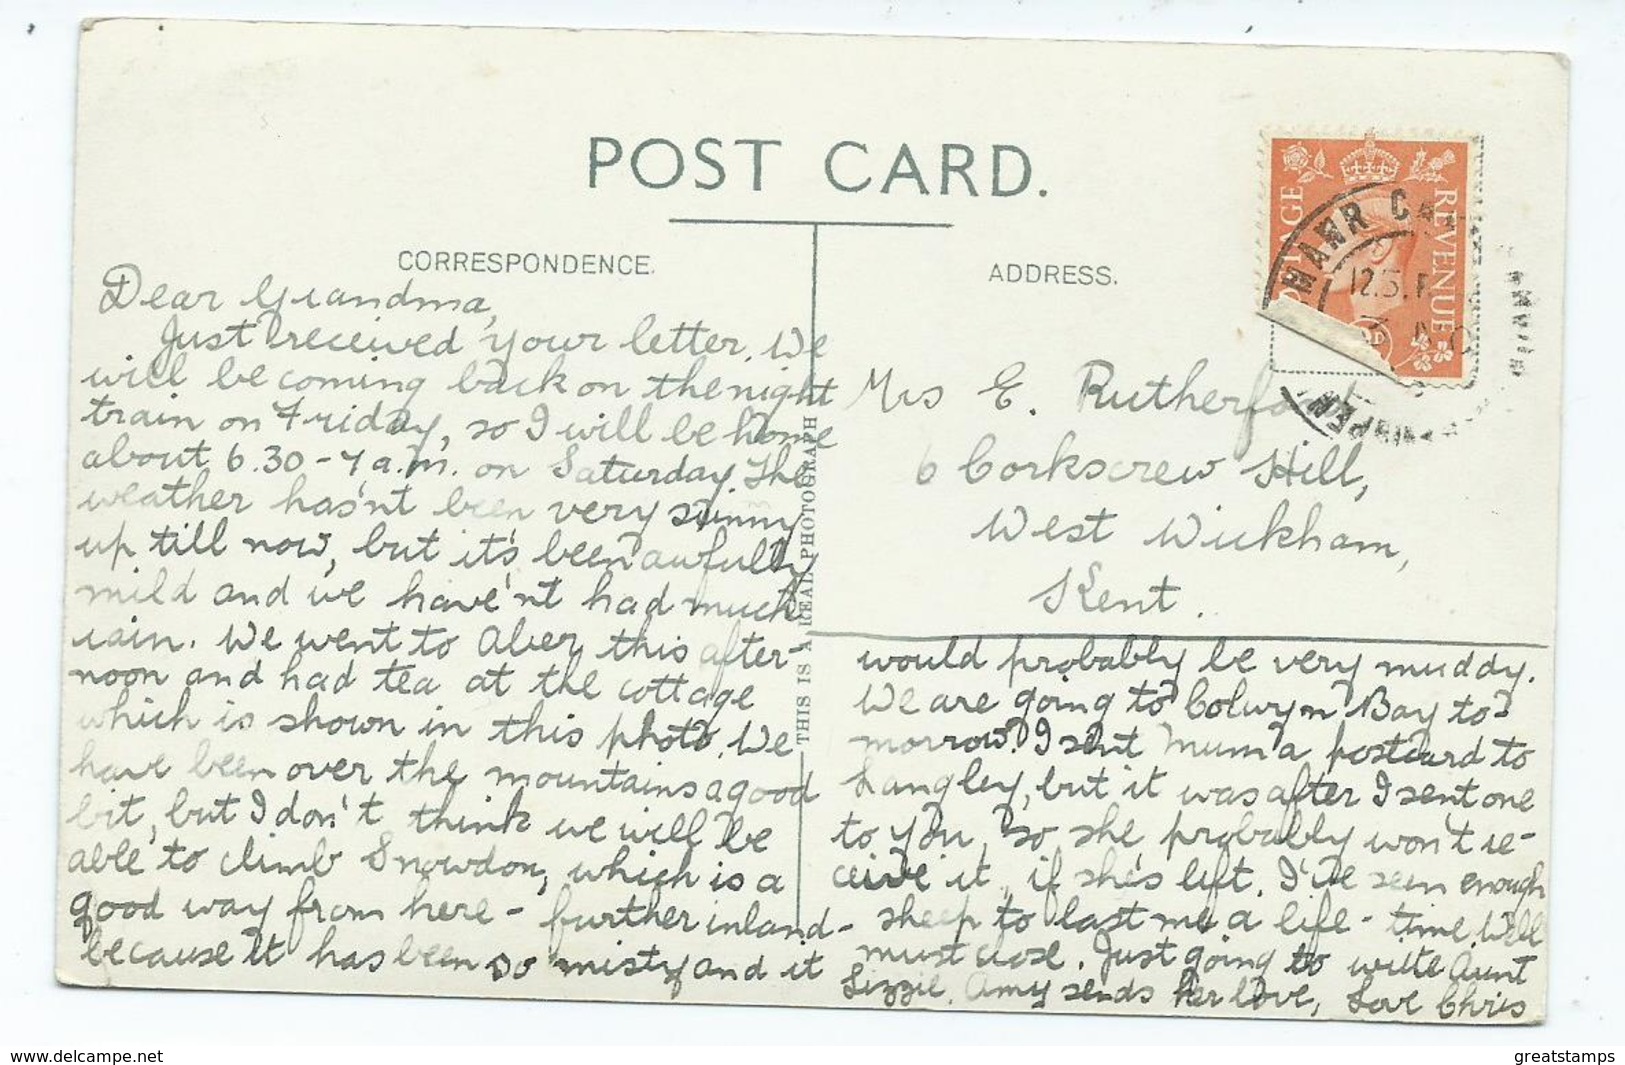 POST CARD.
CORRESPONDENCE.
Dear Grandma,
Just received your letter. We
will be coming back on the night
train on Friday, so I will be home
about 6.30-7 a.m. on Saturday. The
weather has'nt been very sunny
up till now, but it's been awfully
mild and we have'nt had much
rain. We went to Aber, this after-
noon and had tea at the cottage
which is shown in this photo. We
have been over the mountains a good
bit, but I don't think we will be
able to climb Snowdon, which is a
good way from here - further inland -
because it has been so misty and it
THIS IS A REAL PHOTOGRAPH
ADDRESS.
POSTAGE
REVENUE
MAWR
12.5.P
Mrs E. Rutherford
6 Corkscrew Hill,
West Wickham,
Kent.
would probably be very muddy.
We are going to Colwyn Bay to-
morrow. I sent Mum a postcard to
Langley, but it was after I sent one
to you, so she probably won't re-
ceive it, if she's left. I've seen enough
sheep to last me a life-time. Well
must close. Just going to write Aunt
Lizzie. Amy sends her love, Love Chris
www.delcampe.net
greatstamps